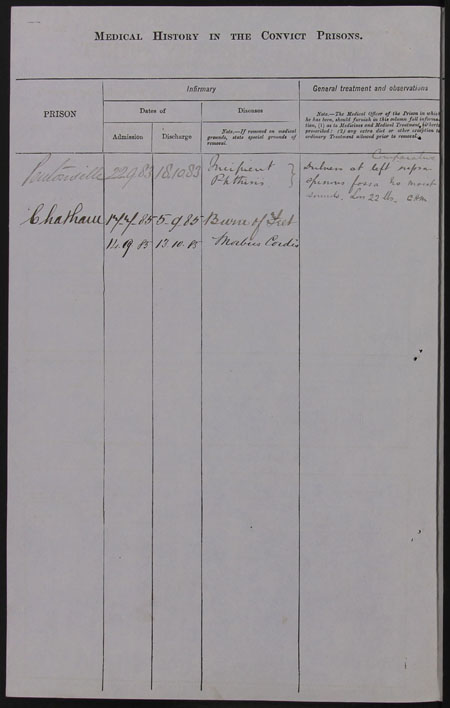 MEDICAL HISTORY IN THE CONVICT PRISONS.
PRISON
Infirmary
General treatment and observations
Dates of
Diseases
Admission
Discharge
Note.—If removed on medical
grounds, state special grounds of
removal.
Note.—The Medical Officer of the Prison in which
he has been, should furnish in this column full
as to Medicines and Medical Treatment,
prescribed: (2) any extra diet or other
ordinary Treatment allowed prior to removal.
Pentonville 22.9.83 18.10.83 Incipient
Phthisis
Comparative
Dulness at left supra
spinous fossa No moist
sounds. 22 lbs.
Chatham 17-7-85 5-9.85 Burn of Feet
14.9.85 13.10.85 Morbus Cordis